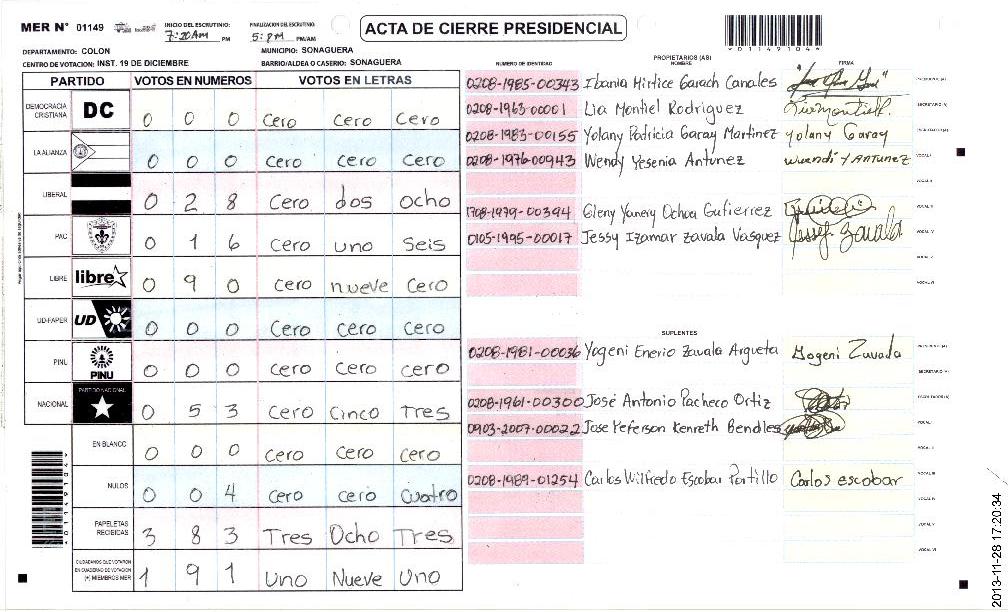 MER N° 01149
INICIO DEL ESCRUTINIO: 7:20Am PM
FINALIZACION DEL ESCRUTINIO: 5:PM PM/AM
ACTA DE CIERRE PRESIDENCIAL
*01149104*
DEPARTAMENTO: COLON
MUNICIPIO: SONAGUERA
CENTRO DE VOTACION: INST. 19 DE DICIEMBRE
BARRIO/ALDEA O CASERIO: SONAGUERA
PARTIDO VOTOS EN NUMEROS VOTOS EN LETRAS
DEMOCRACIA CRISTIANA DC 0 0 0 Cero Cero Cero
LA ALIANZA 0 0 0 Cero Cero Cero
LIBERAL 0 2 8 Cero dos Ocho
PAC 0 1 6 Cero uno Seis
LIBRE libre 0 9 0 Cero nueve Cero
UD-FAPER UD 0 0 0 Cero Cero Cero
PINU PINU 0 0 0 Cero Cero Cero
NACIONAL PARTIDO NACIONAL 0 5 3 Cero Cinco Tres
EN BLANCO 0 0 0 Cero Cero Cero
NULOS 0 0 4 Cero cero Cuatro
PAPELETAS RECIBIDAS 3 8 3 Tres Ocho Tres
CIUDADANOS QUE VOTARON EN CUADERNO DE VOTACION (+) MIEMBROS MER 1 9 1 Uno Nueve Uno
*01149104*
PROPIETARIOS (AS)
NUMERO DE IDENTIDAD NOMBRE FIRMA
0208-1985-00343 Ibania Mirtice Garach Canales
0208-1963-00001 Lia Montiel Rodriguez
0208-1983-00155 Yolany Patricia Garay Martinez Yolany Garay
0208-1976-00943 Wendy Yesenia Antunez Wuendi Y ANTUNEZ
1708-1979-00394 Gleny Yanery Ochoa Gutierrez
0105-1995-00017 Jessy Izamar Zavala Vasquez Jessy Zavala
SUPLENTES
0208-1981-00036 Yogeni Enerio Zavala Argueta Yogeni Zavada
0208-1961-00300 José Antonio Pacheco Ortiz
0903-2007-00022 Jose Yeferson Kenreth Bendles
0208-1989-01254 Carlos Wilfredo Escobar Portillo Carlos escobar
2013-11-28 17:20:34